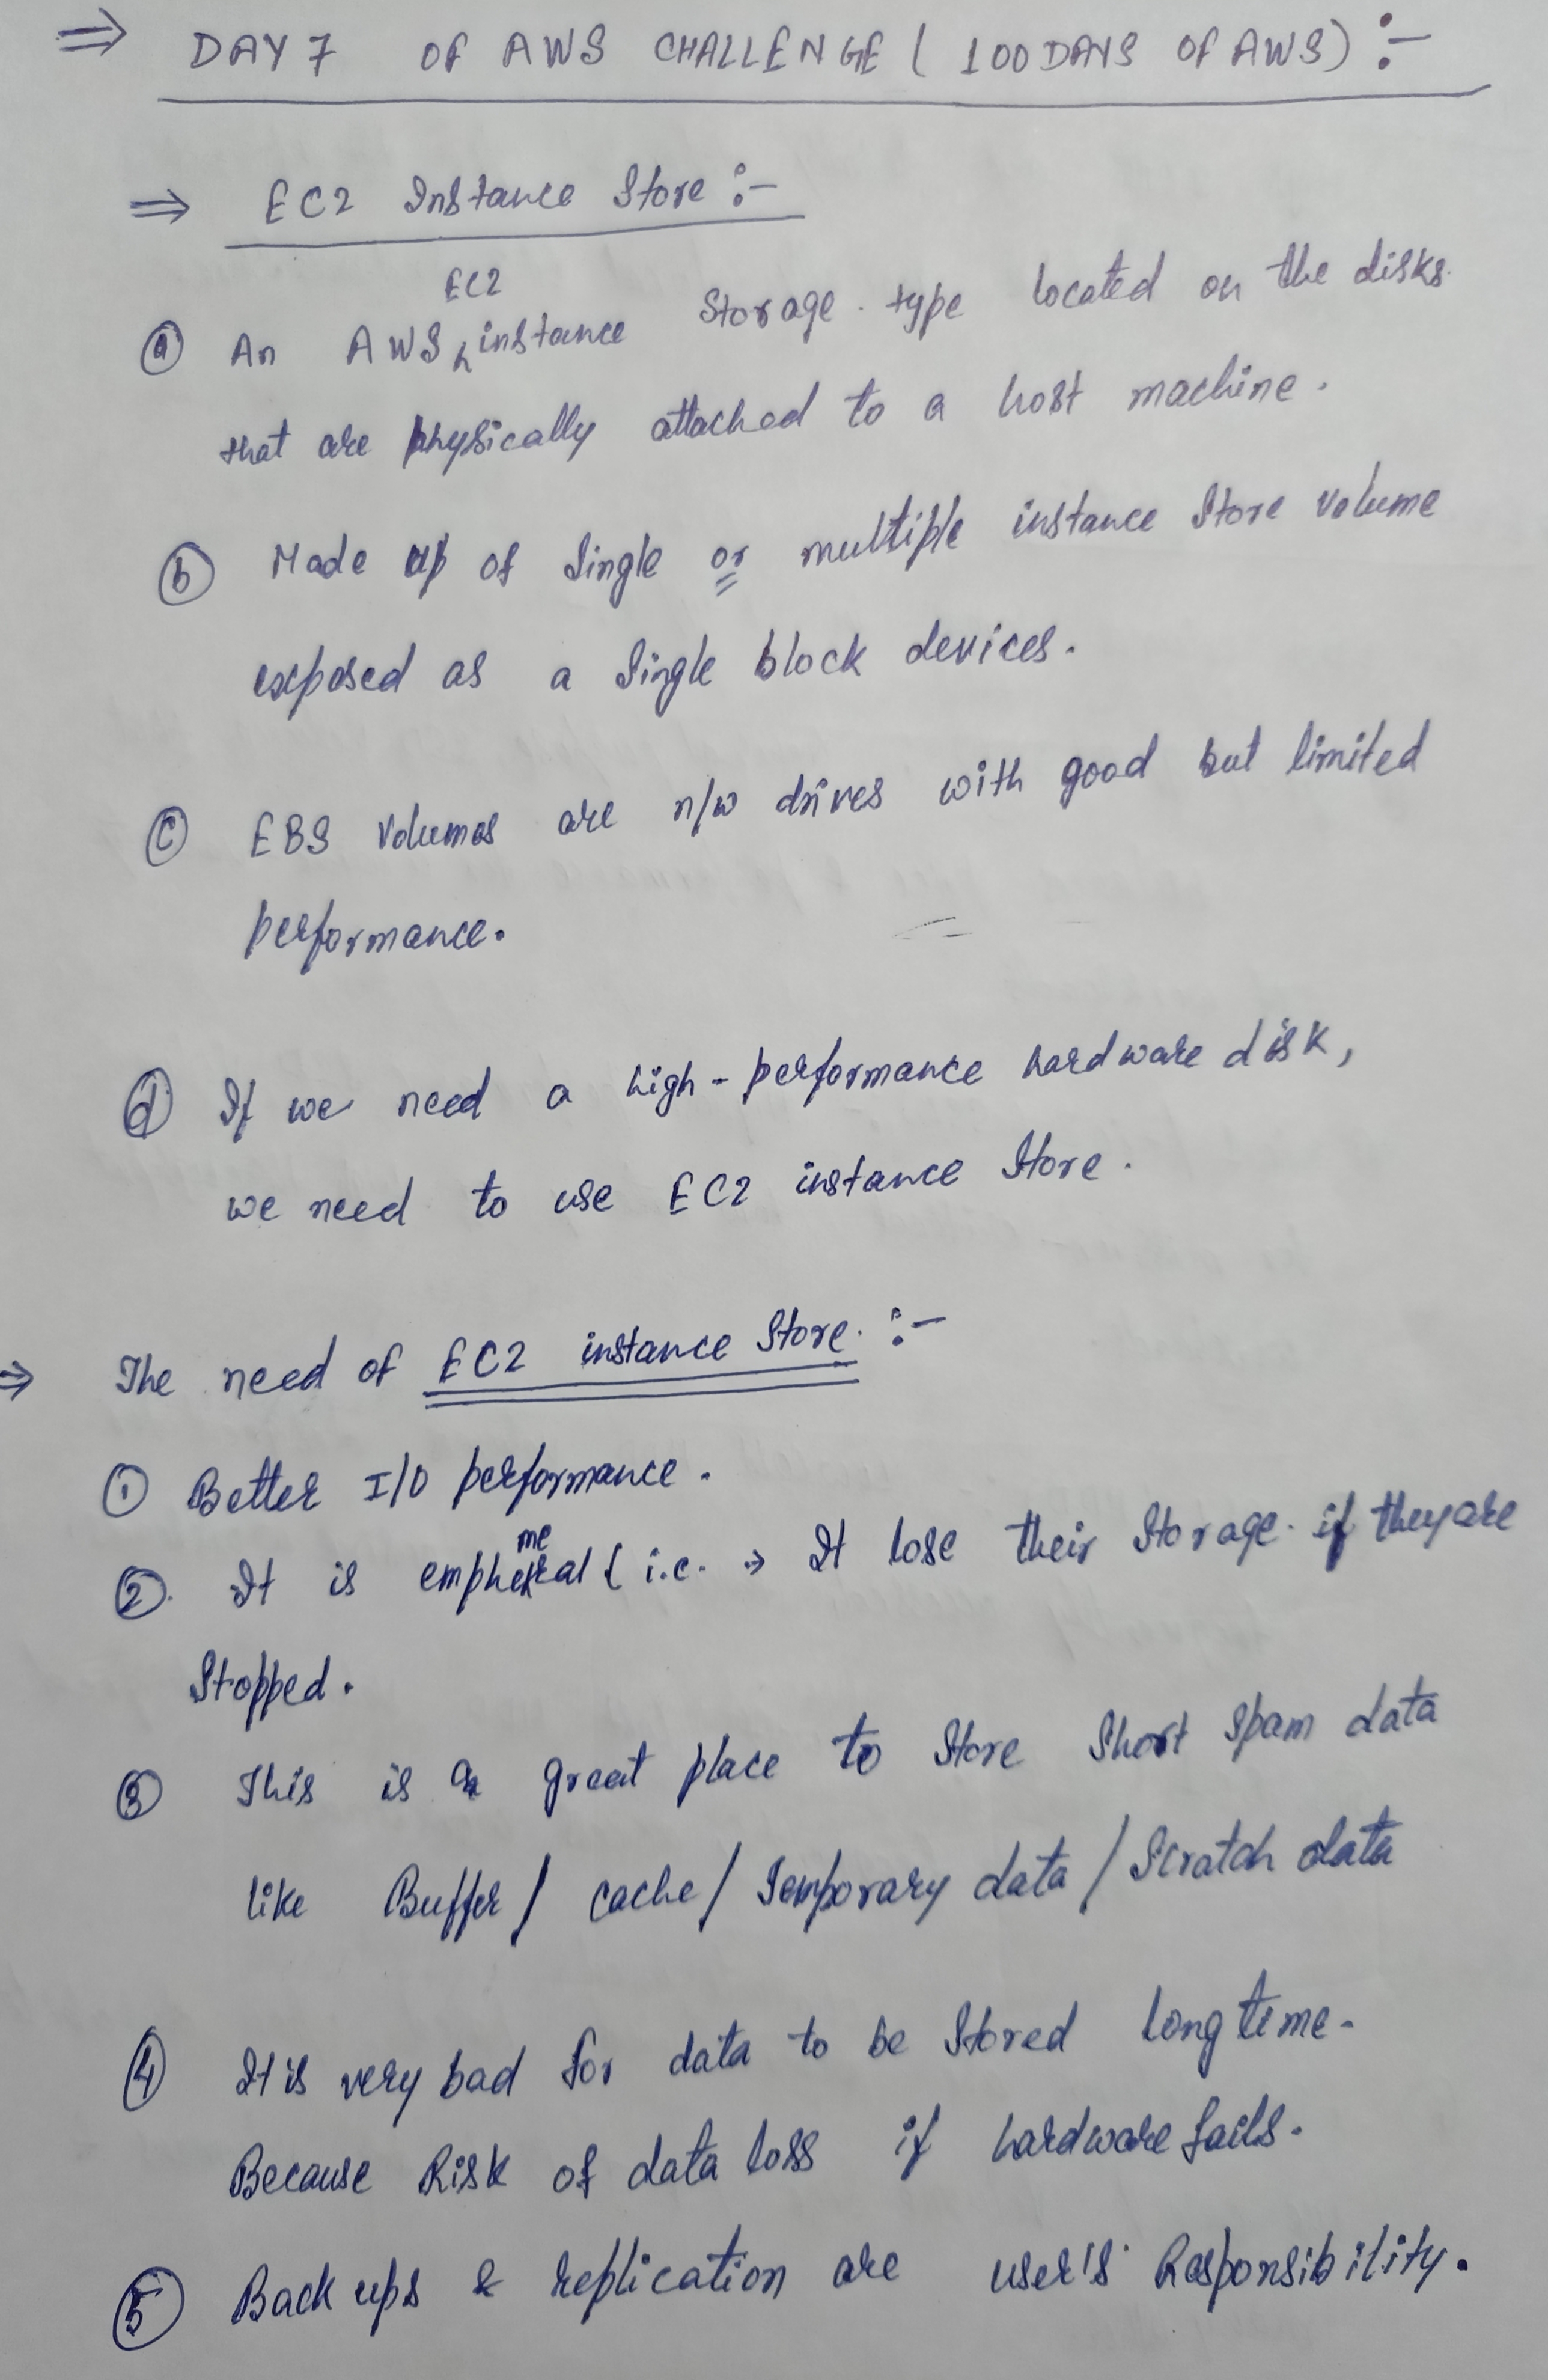 ⇒ DAY 7 OF AWS CHALLENGE ( 100 DAYS OF AWS) :-
⇒ EC2 Instance Store :-
EC2
ⓐ An AWS instance Storage type located on the disks
that are physically attached to a host machine.
ⓑ Made up of Single or multiple instance Store volume
exposed as a Single block devices.
ⓒ EBS volumes are n/w drives with good but limited
performance.
ⓓ If we need a high-performance hardware disk,
we need to use EC2 instance Store.
⇒ The need of EC2 instance Store :-
① Better I/O performance.
② It is emphemeral ( i.e. → It lose their Storage if they are
Stopped.
③ This is a great place to Store Short Spam data
like Buffer / cache / Temporary data / Scratch data
④ It is very bad for data to be Stored long time.
Because Risk of data loss if hardware fails.
⑤ Back ups & replication are user's Responsibility.